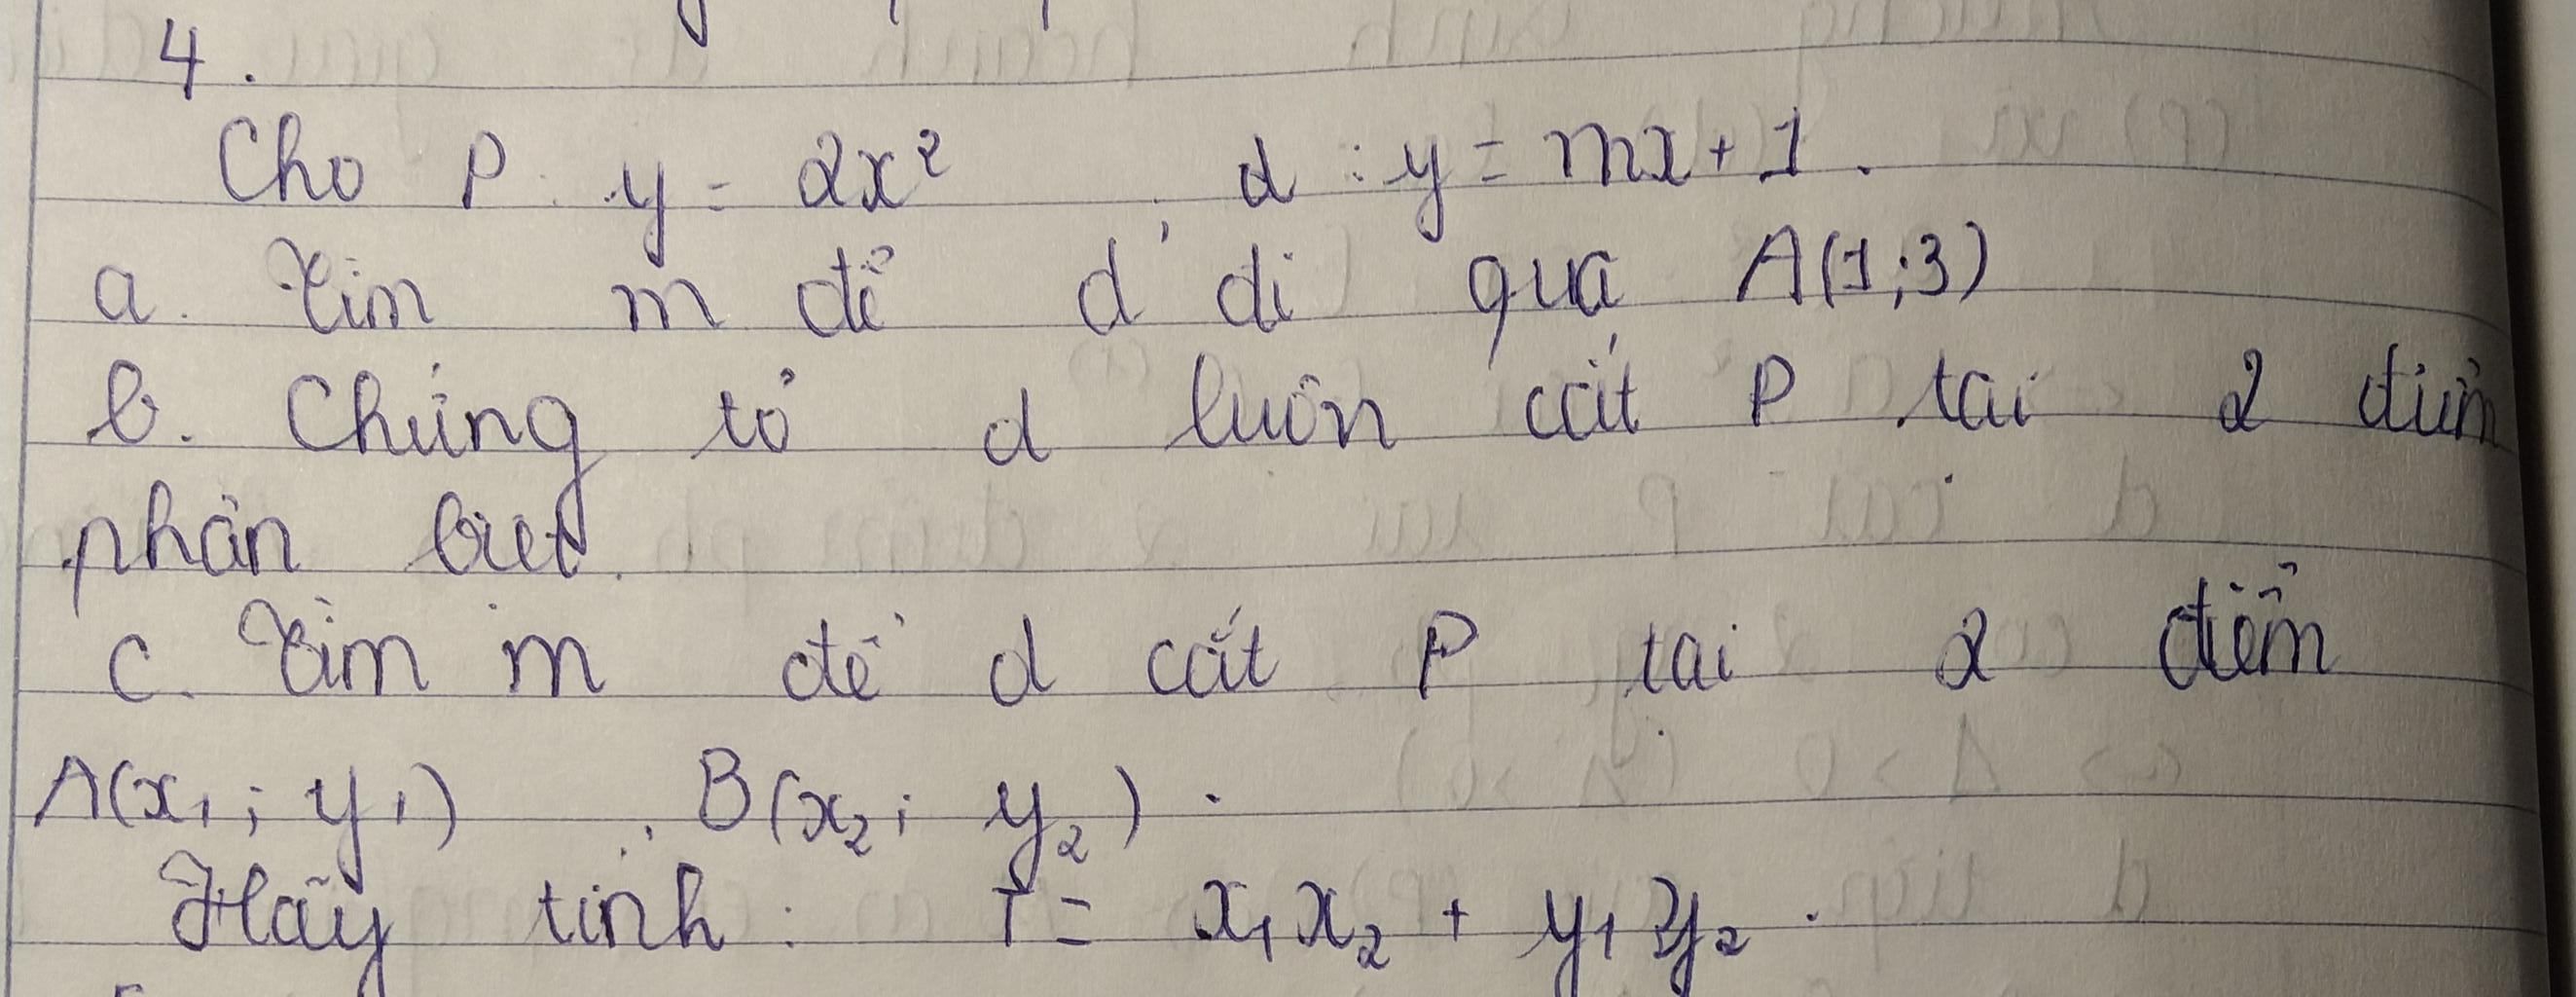 4.
Cho P: y = 2x² . d : y = mx + 1.
a. Tìm m để d đi qua A(1;3)
b. Chứng tỏ d luôn cắt P tại 2 điểm
phân biệt.
c. Tìm m để d cắt P tại 2 điểm
A(x₁; y₁) , B(x₂; y₂).
Hãy tính : T = x₁x₂ + y₁y₂.